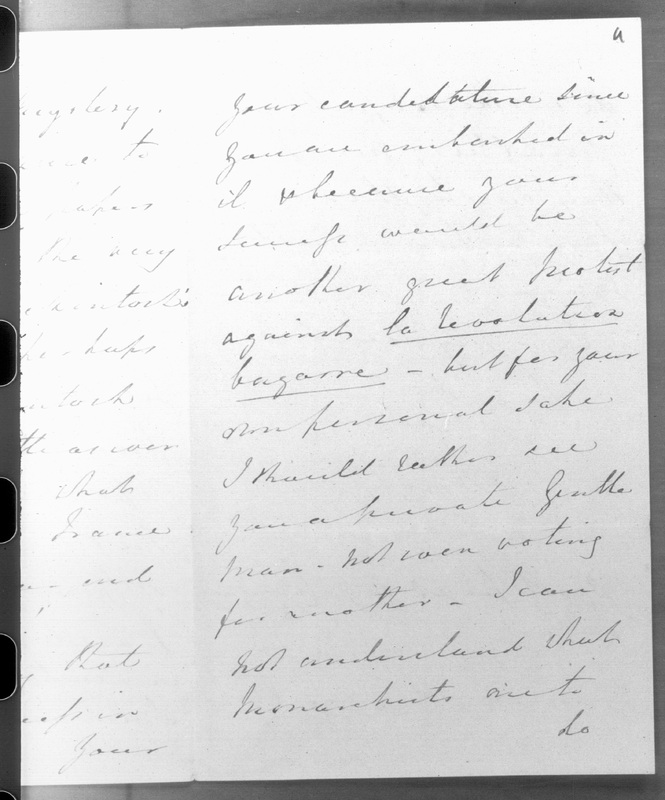 mystery.
to
the very
perhaps
as ever
what
France
and
that
in
your
a
your candidature since
you are embarked in
it & because your
success would be
another great protest
against la revolution
bagarre - but for your
own personal sake
I should rather see
you a private gentle
man - not even voting
for another - I can
not understand what
Monarchists are to
do